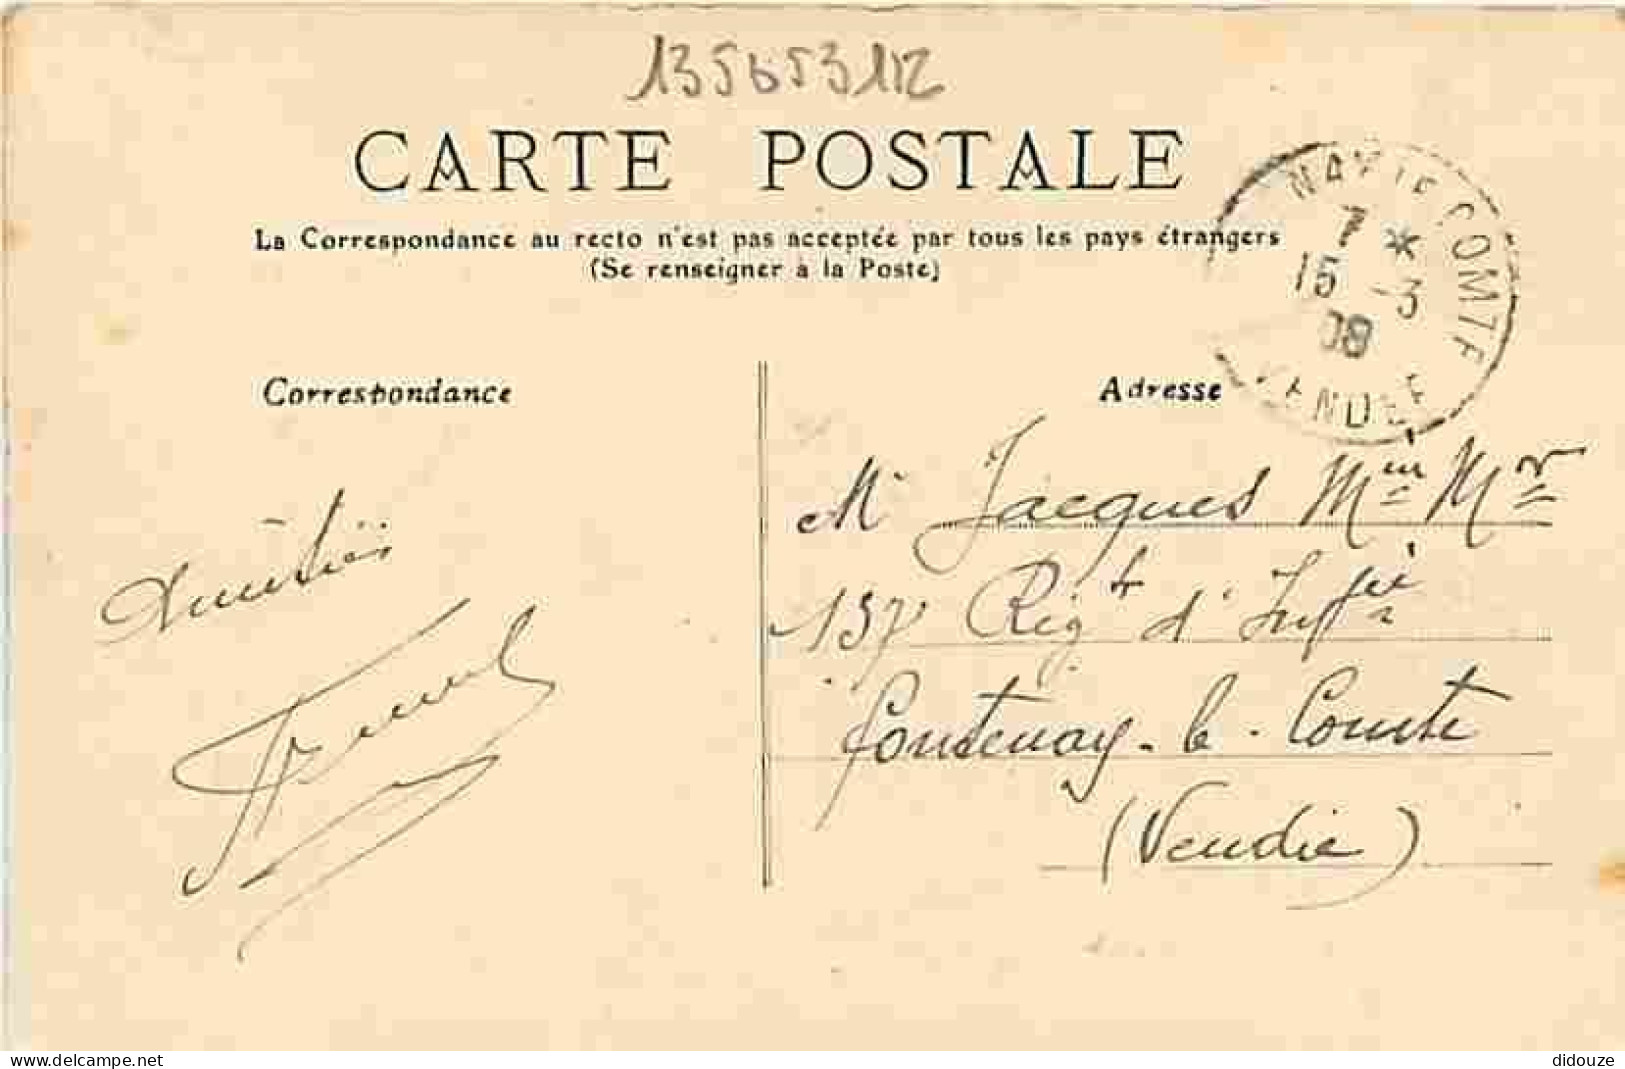 135653112
CARTE POSTALE
La Correspondance au recto n'est pas acceptée par tous les pays étrangers
(Se renseigner à la Poste)
NAY-LE-COMTE
7 *
15 -3
08
VENDÉE
Correspondance
Adresse
Amitiés
M Jacques Mtre Mr
137e Régt d'Inftie
Fontenay-le-Comte
(Vendée)
www.delcampe.net
didouze